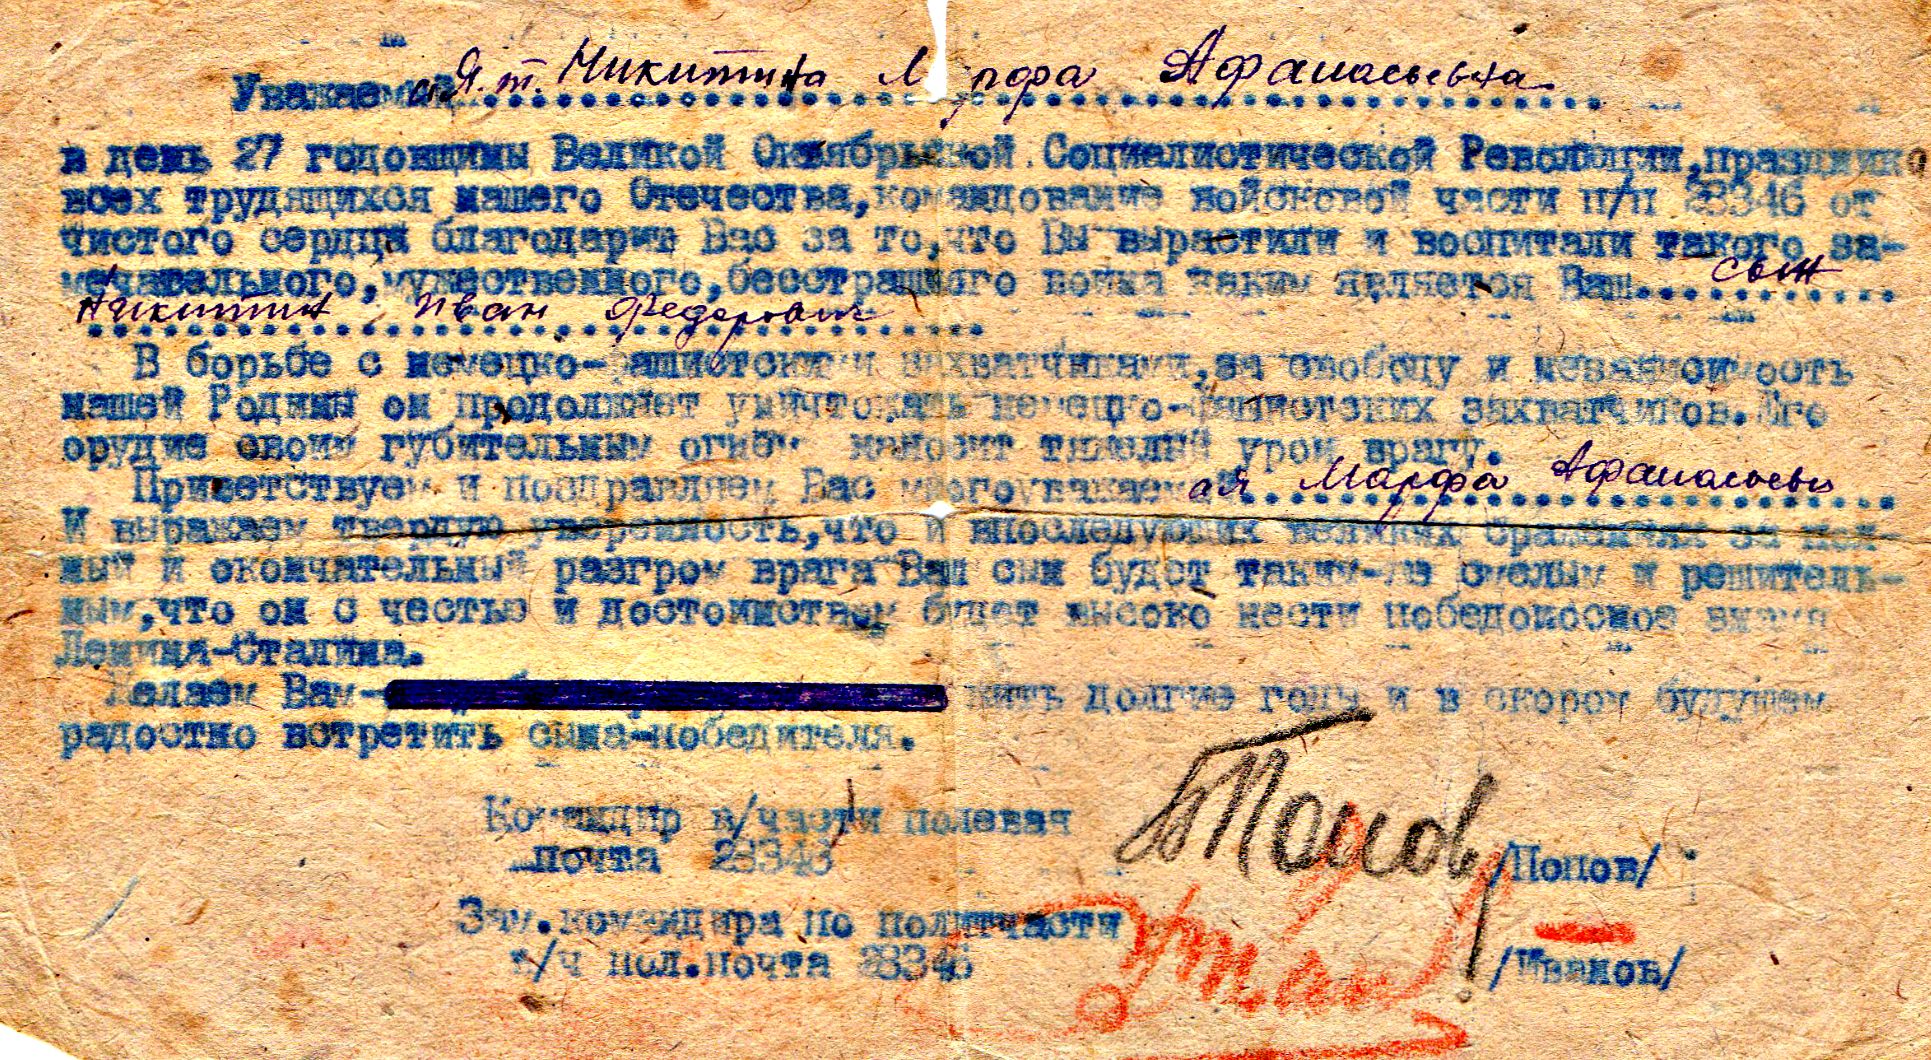 Уважаемая т. Никитина Марфа Афанасьевна
в день 27 годовщины Великой Октябрьской Социалистической Революции, праздника
всех трудящихся нашего Отечества, командование войсковой части п/п 28346 от
чистого сердца благодарит Вас за то, что Вы вырастили и воспитали такого за-
мечательного, мужественного, бесстрашного воина каким является Ваш сын
Никитин Иван Федорович
В борьбе с немецко-фашистскими захватчиками, за свободу и независимость
нашей Родины он продолжает уничтожать немецко-фашистских захватчиков. Его
орудие своим губительным огнём наносит тяжелый урон врагу.
Приветствуем и поздравляем Вас многоуважаемая Марфа Афанасьевна
И выражаем твердую уверенность, что и впоследующих великих сражениях за пол-
ный и окончательный разгром врага Ваш сын будет таким-же смелым и решитель-
ным, что он с честью и достоинством будет высоко нести победоносное знамя
Ленина-Сталина.
Желаем Вам- жить долгие годы и в скором будущем
радостно встретить сына-победителя.
Командир в/части полевая
почта 28346 Попов /Попов/
Зам.командира по политчасти
в/ч пол.почта 28346 /Иванов/